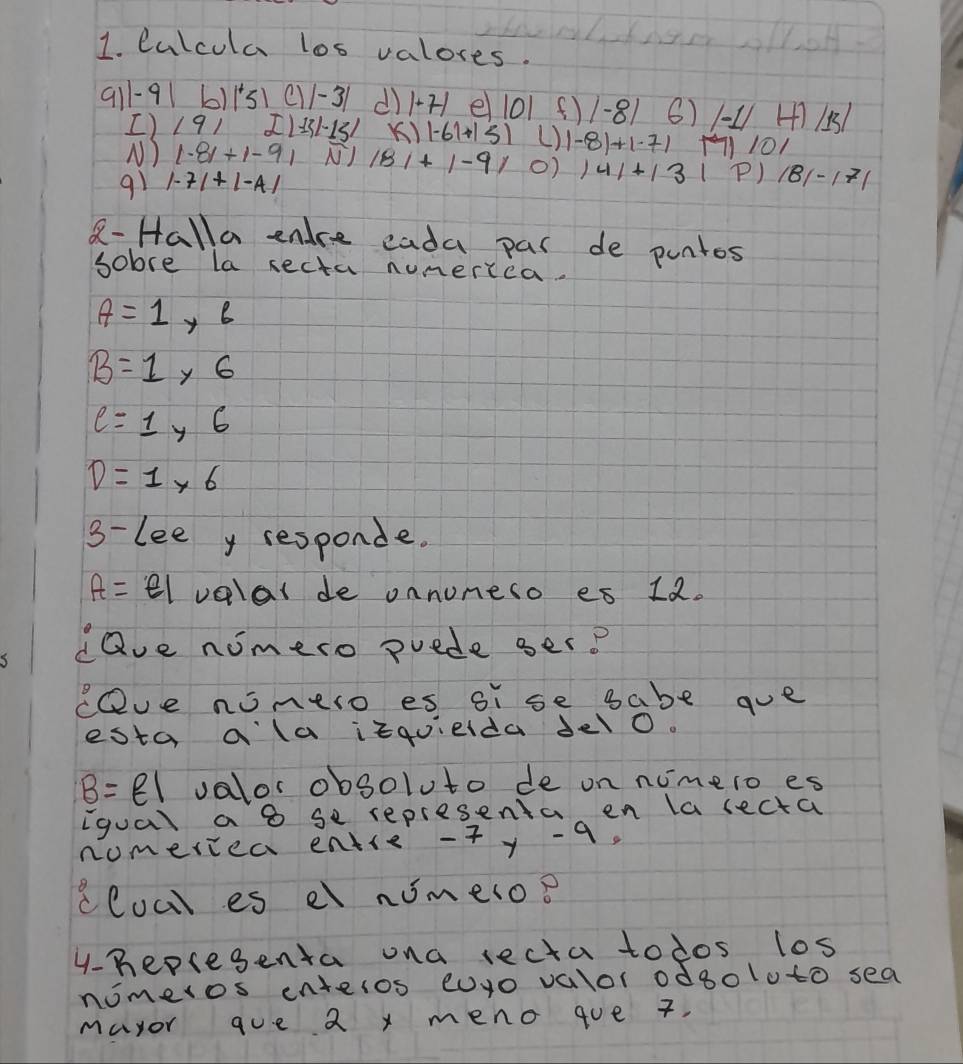 1. Calcula los valores.
a) |-9| b) |+5| c) |-3| d) |+7| e) |0| f) |-8| G) |-1| H) |15|
I) |9| J) |-13|-|-13| K) |-6|+|5| L) |-8|+|-7| M) |0|
N) |-8|+|-9| Ñ) |8|+|-9| O) |4|+|3| P) |8|-|7|
q) |-7|+|-4|
2-Halla entre cada par de puntos
sobre la recta numerica.
A=1 y 6
B=1 y 6
C=1 y 6
D=1 y 6
3-Lee y responde.
A= El valor de unnumero es 12.
¿Que número puede ser?
¿Que número es si se sabe que
esta a la izquierda del 0.
B= El valor obsoluto de un número es
igual a 8 se representa en la recta
numerica entre -7 y -9.
¿Cual es el número?
4-Representa una recta todos los
números enteros cuyo valor odsoluto sea
mayor que 2 y meno que 7.